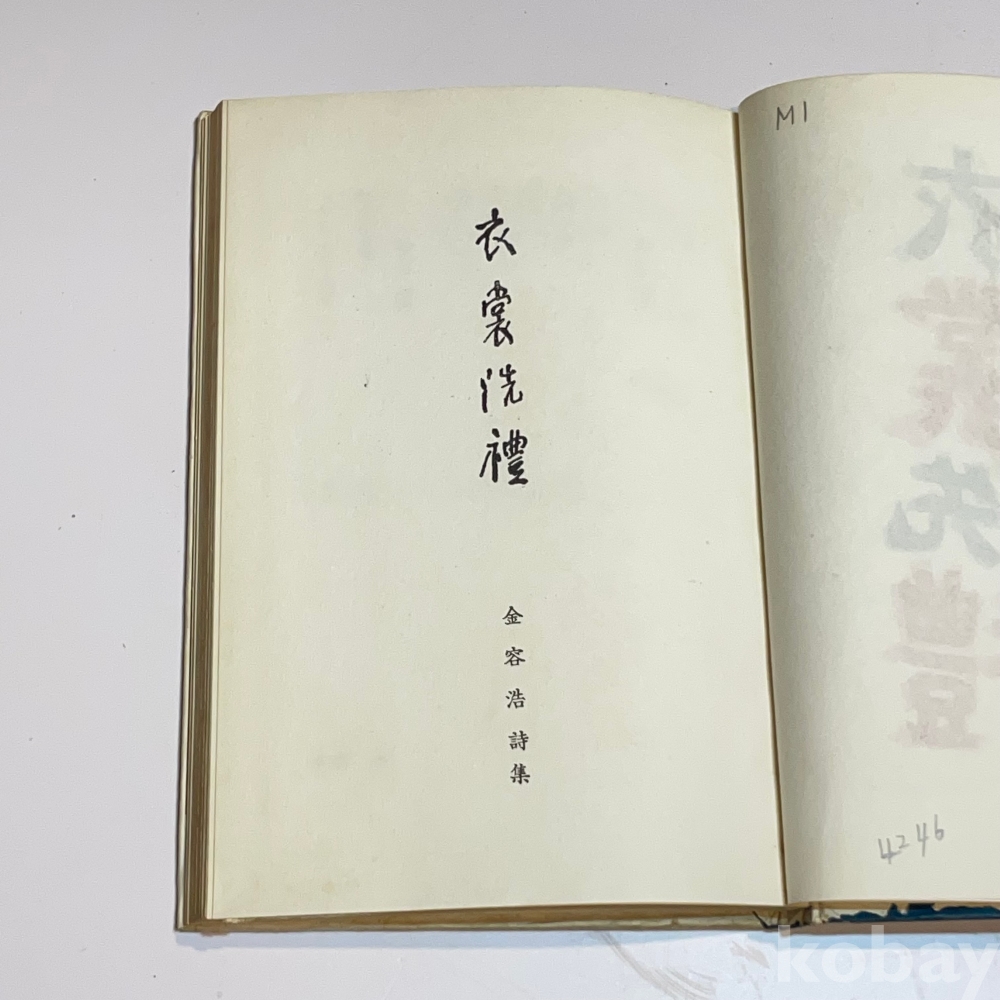 衣裳洗禮
金容浩詩集
M1
4246
kobay